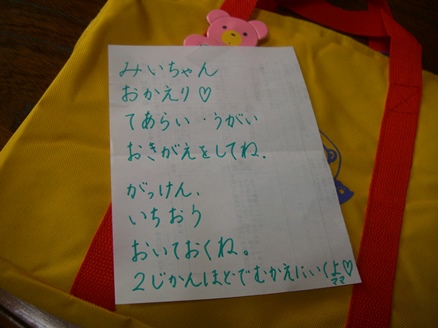 みいちゃん
おかえり♡
てあらい・うがい
おきがえをしてね.
がっけん、
いちおう
おいておくね。
2じかんほどでむかえにいくよ♡
ママ